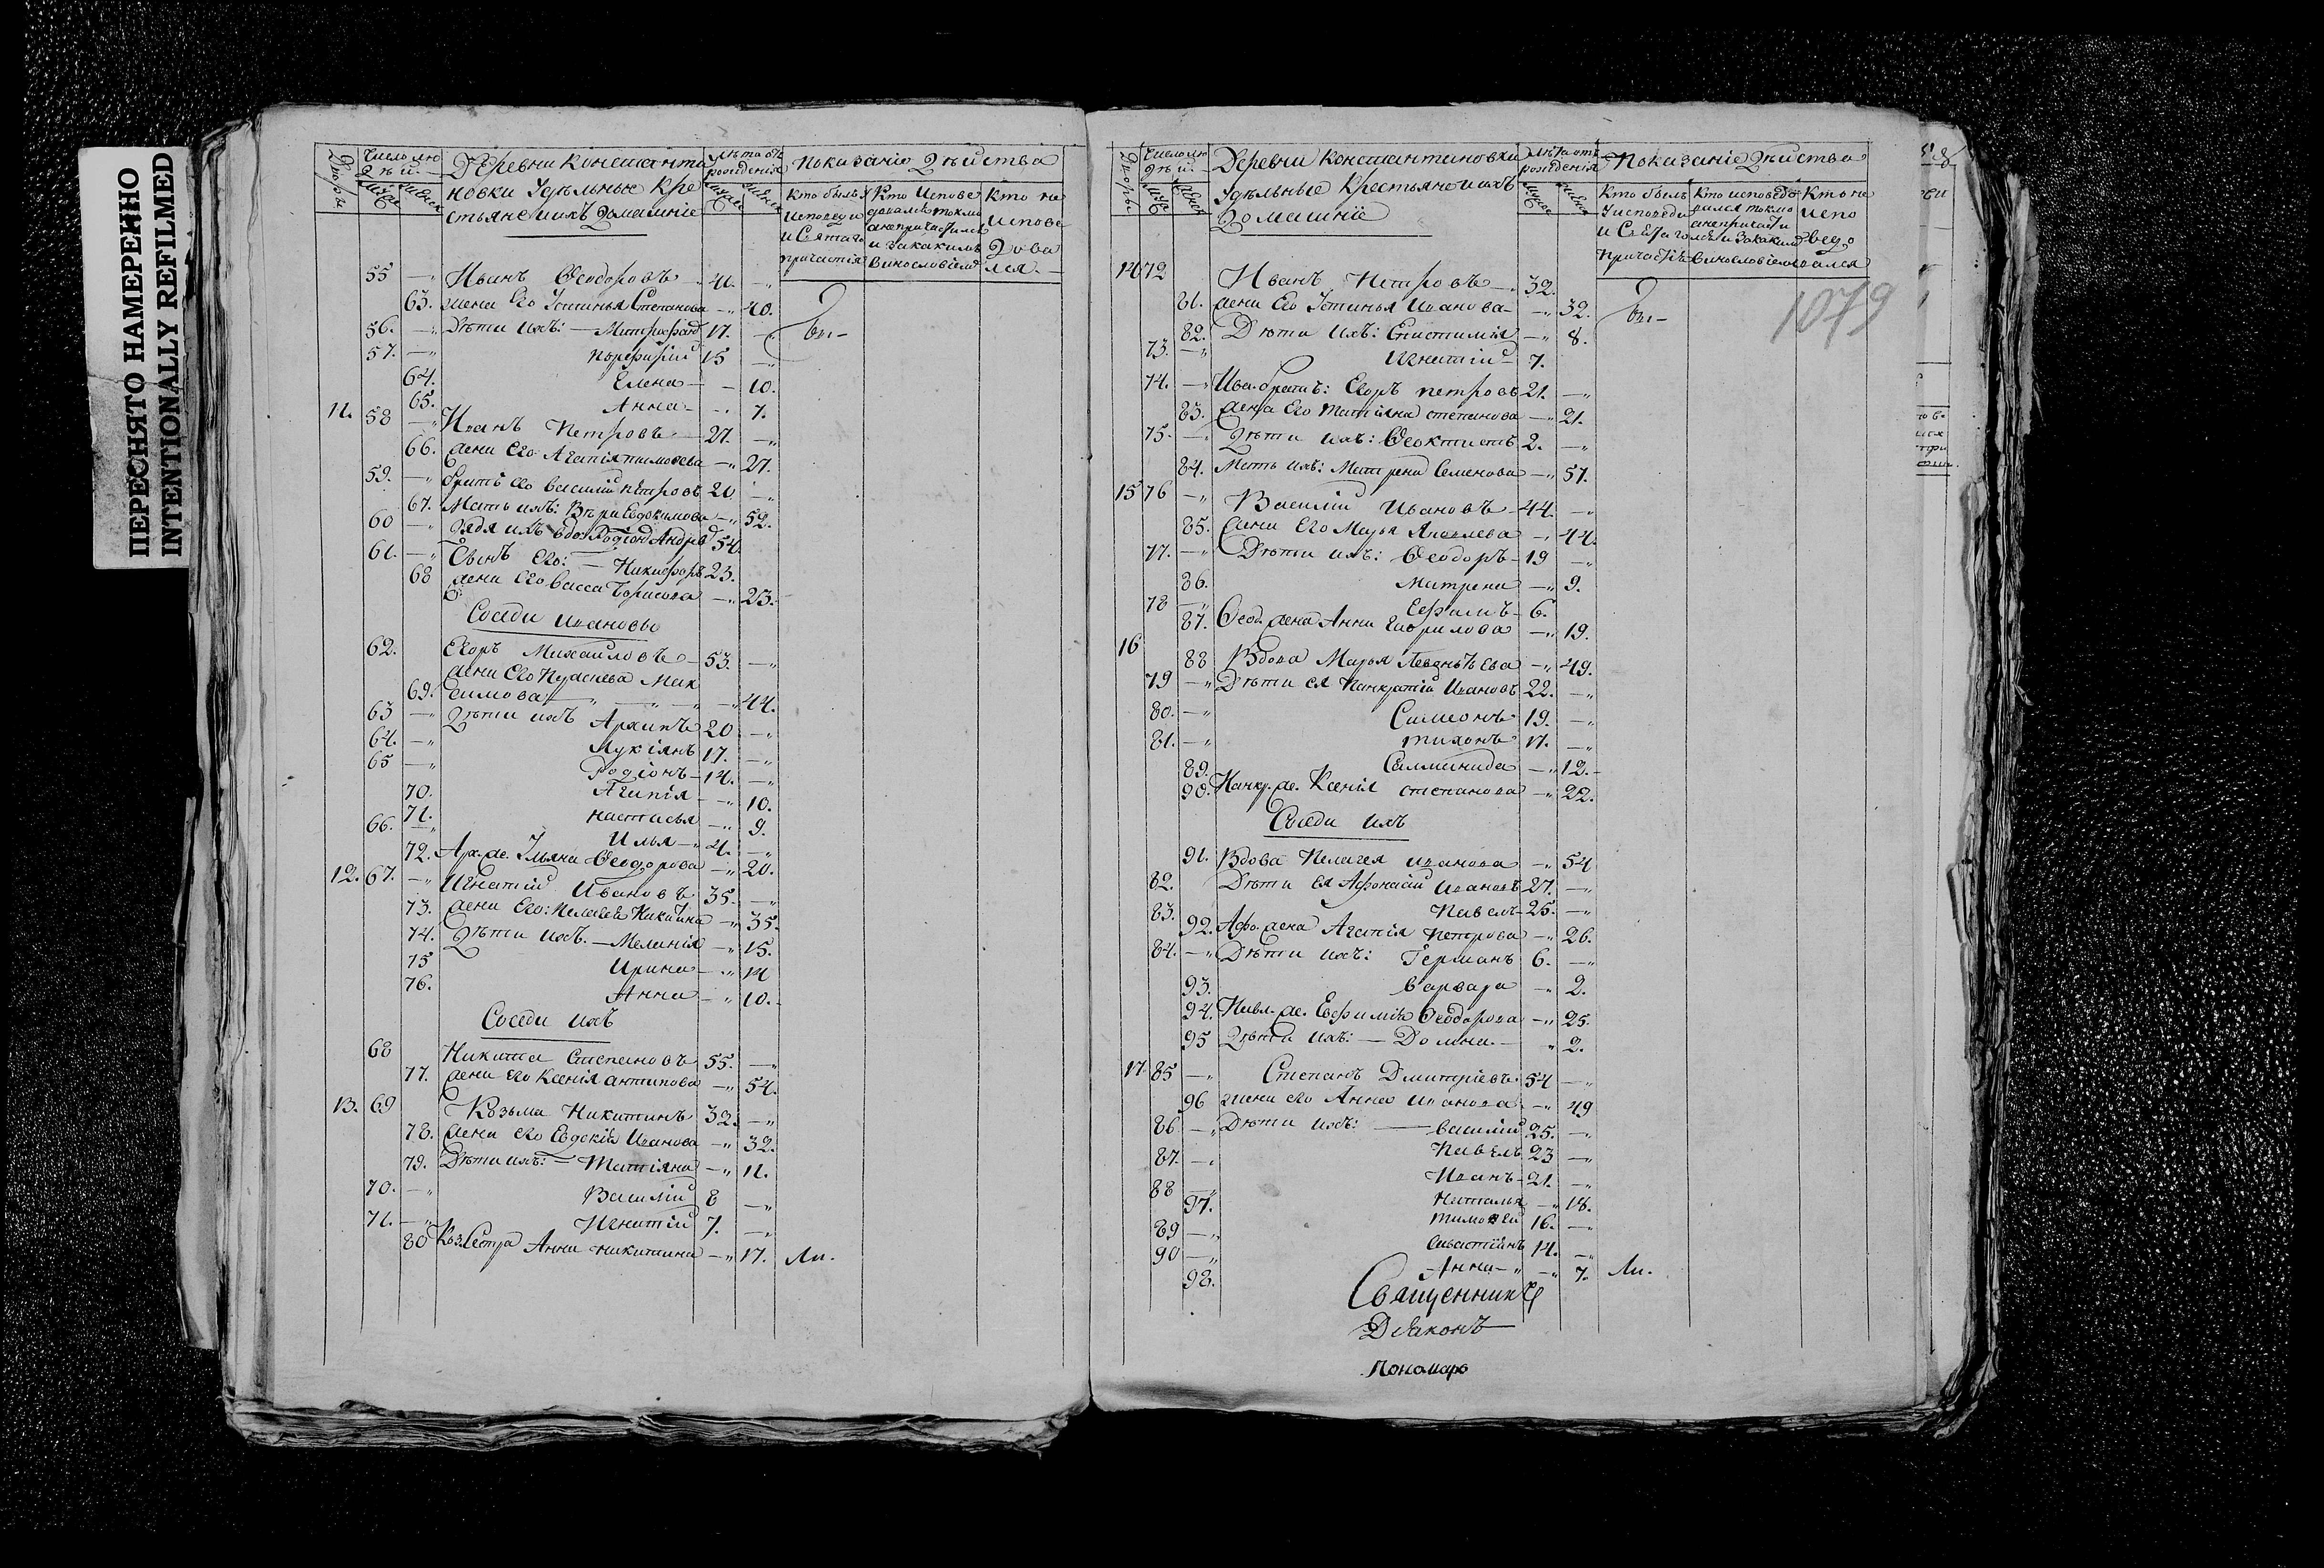 ПЕРЕСНЯТО НАМЕРЕННО
INTENTIONALLY REFILMED
Дворы
Число лю
дей
Деревни Константи
новки Удѣльные Кре
стьяне ихъ домашніе
Лѣта отъ
рожденія
Показаніе дѣйства
Кто былъ у
исповеди
и Святаго
причастія
Кто Испове
давался токмо
а не причастился
и за какимъ
винословіемъ
Кто не
испове
дова
лся
55 Иванъ Ѳеодоровъ 41.
63. жена Его Устинья Степанова 40.
56. Дѣти ихъ: Митрофанъ 17.
57. Порфирій 15
64. Елена 10.
65. Анна 7.
11. 58 Иванъ Петровъ 27.
66. жена Его Агапія тимоѳева 27.
59. братъ его василій петровъ 20
67. Мать ихъ: Вѣра Евдокимова 52.
60 дядя ихъ вдо: Родіонъ Андреев 54.
61. Сынъ Его: Никифоръ 23.
68 жена его васса Борисова 23.
Соседи ивановы
62. Егоръ Михаиловъ 53
жена Его Параскева Мак
69. симова 44.
63 Дѣти ихъ Архипъ 20
64. Лукіянъ 17.
65 Родіонъ 14.
70. Агапія 10.
71. настасья 9.
66. Илья 4.
72. Ар. же. Ульяна Ѳеодорова 20.
12. 67. Игнатій Ивановъ 35.
73. жена Его: Пелагея Никитина 35.
74. Дѣти ихъ. Меланія 15.
75 Ирина 14
76. Анна 10.
Соседи ихъ
68 Никита Степановъ 55.
77. жена его Ксенія антипова 54.
13. 69 Козьма Никитинъ 32.
78. жена его Евдокія Иванова 32.
79. Дѣти ихъ: Татіяна 11.
70. Василій 8
71. Игнатій 7.
80 Коз. Сестра Анна никитина 17. Ли.
Дворы
Число лю
дей
Деревни Константиновки
Удѣльные Крестьяне ихъ
Домашніе
Лѣта отъ
рожденія
Показаніе дѣйства
Кто былъ
у исповеди
и Святаго
причастія
Кто исповедо
вался токмо
а не причасти
лся и за какимъ
винословіемъ
Кто не
испо
ведо
вался
1079
14 72 Иванъ Петровъ 32.
81. жена Его Устинья Иванова 32.
82. Дѣти Ихъ: Епистимія 8.
73. Игнатій 7.
74. Ива. братъ: Егоръ петровъ 21.
83. жена Его Татіяна степанова 21.
75. Дѣти ихъ: Ѳеоктистъ 2.
84. Мать ихъ: Матрена Семенова 57.
15 76 Василій Ивановъ 44.
85. жена Его Марья Яковлева 44.
77. Дѣти ихъ: Ѳеодоръ 19
86. Матрена 9.
78 Ефимъ 6.
87. Ѳеод. жена Анна Гаврилова 19.
16 88 Вдова Марья Леонтьева 49.
79 Дѣти ея Панкратій Ивановъ 22.
80. Симеонъ 19.
81. тихонъ 17.
89. Саламанида 12.
90. Панкр. же. Ксенія степанова 22.
Соседи ихъ
91. Вдова Пелагея иванова 54
82. Дѣти ея Афонасій Ивановъ 27.
83. Павелъ 25.
92. Афо. жена Агапія петрова 26.
84. Дѣти ихъ: Германъ 6.
93. варвара 2.
94. Павл. же. Евфимія Ѳеодорова 25.
95 Дѣти ихъ: Домна 2.
17 85 Степанъ Дмитріевъ 54
96 жена его Анна иванова 49
86 Дѣти ихъ: василій 25.
87. Павелъ 23
88 Иванъ 21.
97. Наталья 18.
89 тимоѳей 16.
90 Савастіянъ 14.
98. Анна 7. Ли.
Священникъ
Діаконъ
Пономарь